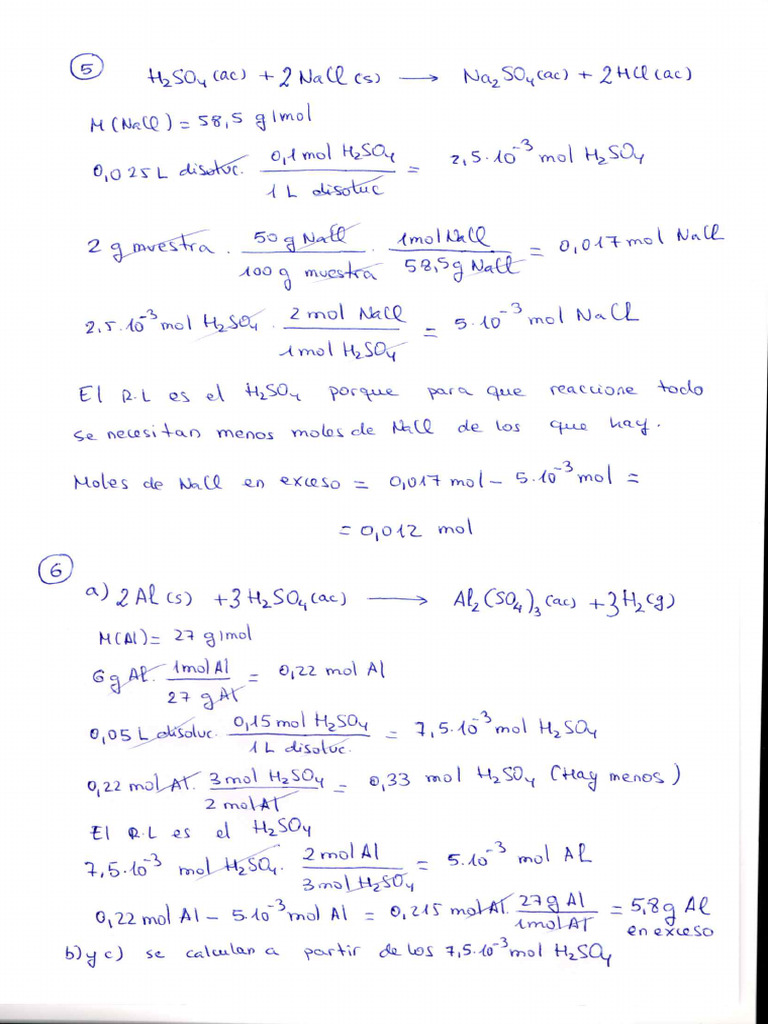 5 H₂SO₄(ac) + 2 NaCl(s) ⟶ Na₂SO₄(ac) + 2HCl(ac)
M(NaCl) = 58,5 g/mol
0,025 L disoluc. · 0,1 mol H₂SO₄ / 1 L disoluc = 2,5·10⁻³ mol H₂SO₄
2 g muestra · 50 g NaCl / 100 g muestra · 1 mol NaCl / 58,5 g NaCl = 0,017 mol NaCl
2,5·10⁻³ mol H₂SO₄ · 2 mol NaCl / 1 mol H₂SO₄ = 5·10⁻³ mol NaCl
El R.L es el H₂SO₄ porque para que reaccione todo
se necesitan menos moles de NaCl de los que hay.
Moles de NaCl en exceso = 0,017 mol − 5·10⁻³ mol =
= 0,012 mol
6
a) 2Al(s) + 3H₂SO₄(ac) ⟶ Al₂(SO₄)₃(ac) + 3H₂(g)
M(Al) = 27 g/mol
6 g Al · 1 mol Al / 27 g Al = 0,22 mol Al
0,05 L disoluc. · 0,15 mol H₂SO₄ / 1 L disoluc. = 7,5·10⁻³ mol H₂SO₄
0,22 mol Al · 3 mol H₂SO₄ / 2 mol Al = 0,33 mol H₂SO₄ (Hay menos)
El R.L es el H₂SO₄
7,5·10⁻³ mol H₂SO₄ · 2 mol Al / 3 mol H₂SO₄ = 5·10⁻³ mol Al
0,22 mol Al − 5·10⁻³ mol Al = 0,215 mol Al · 27 g Al / 1 mol Al = 5,8 g Al
en exceso
b) y c) se calculan a partir de los 7,5·10⁻³ mol H₂SO₄